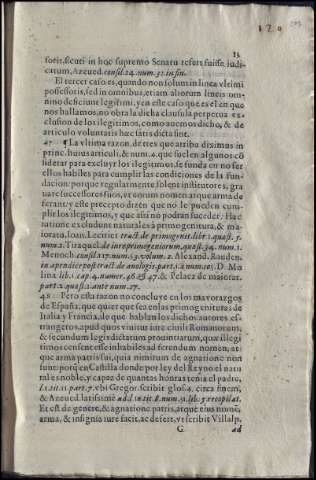 13
foris, sicuti in hoc supremo Senatu refers fuisse iudi-
catum, Azeued. consil. 24. num. 31. in fin.
El tercer caso es, quando non solum in linea vltimi
possessoris, sed in omnibus, etiam aliorum lineis om-
nino deficiunt legitimi, y en este caso que es el en que
nos hallamos, no obra la dicha clausula perpetua ex-
clusion de los ilegitimos, como auemos dicho, & de
articulo voluntatis hæc satis dicta sint.
47 ¶ La vltima razon, de tres que arriba diximus in
princ. huius articuli, & num. 4. que suelen algunos cõ
siderar para excluyr los ilegitimos, se funda en no ser
ellos habiles para cumplir las condiciones de la fun-
dacion: porque regularmente solent institutores, gra
uare successores suos, vt eorum nomen atque arma de
ferant, y este precepto dizen que no le pueden cum-
plir los ilegitimos, y que assi no podran suceder. Hac
ratione excludunt naturales à primogenitura, & ma-
ioratu, Ioan. Lecirier tract. de primogenit. lib. 1. quæst. 7.
num. 1. Tiraquel. de iure primogeniorum, quæst. 34. num. 1.
Menoch. consil. 117. num. 53. volum. 2. Alexand. Rauden.
in apendice post tract. de analogis part. 1. à num. 125. D. Mo
lina lib. 1. cap. 4. numer. 46. & 47. & Pelaez de maiorat.
part. 2. quæst. 1. ante num. 27.
48 Pero esta razon no concluye en los mayorazgos
de España, que quier que sea en los primogenitures de
Italia y Francia, de que hablan los dichos autores es-
trangeros, apud quos viuitur iure ciuili Romanorum,
& secundum leges dictatum prouintiarum, quæ illegi
timos censent esse inhabiles ad ferendum nomen, at-
que arma patris sui, quia nimirum de agnatione non
sunt: porq̃ en Castilla donde por ley del Reyno el natu
ral es noble, y capaz de quantas honras tenia el padre,
l. 1. tit. 11. part. 7. vbi Gregor. scribit glosa, circa finem,
& Azeued. latissimè add. in tit. 8. num. 31. lib. 5. recopilat.
Et est de genere, & agnatione patris, atque eius nomē,
arma, & insignia iure facit, ac defert, vt scribit Villalp.
G ad